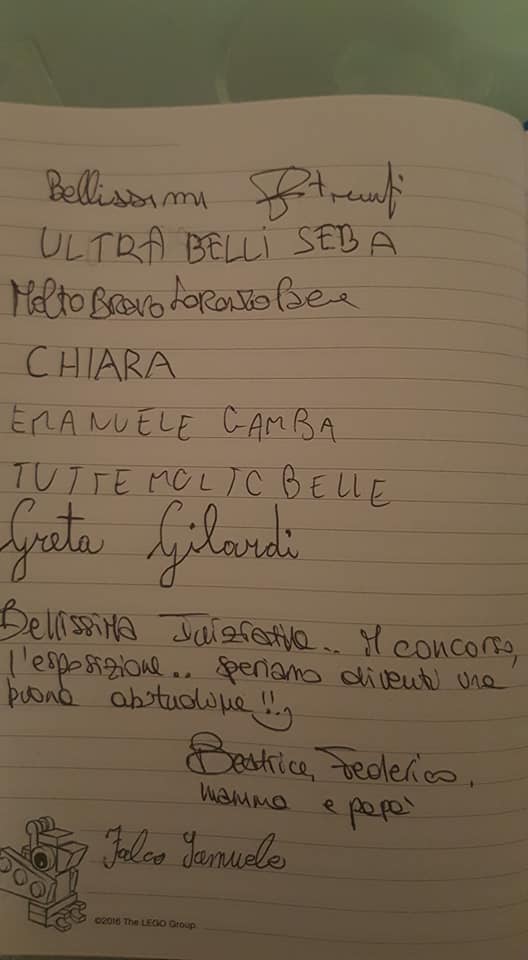 Bellissimi
ULTRA BELLI SEBA
Molto Bravo Lorenzo
CHIARA
EMANUELE GAMBA
TUTTE MOLTO BELLE
Greta Gilardi
Bellissima Iniziativa.. il concorso,
l'esposizione.. speriamo diventi una
buona abitudine!!
Beatrice, Federico,
mamma e papà
Falco Samuele
©2016 The LEGO Group.